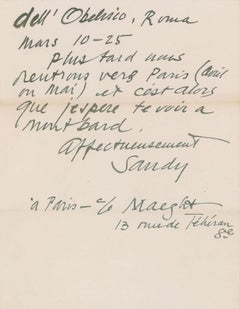 dell' Obelisco, Roma
Mars 10-25
plus tard nous
rentrons vers Paris (avril
ou Mai) et c'est alors
que j'espere te voir a
montbard.
Affectueusement
Sandy
à Paris - c/o Maeght
13 rue de Téhéran
8e